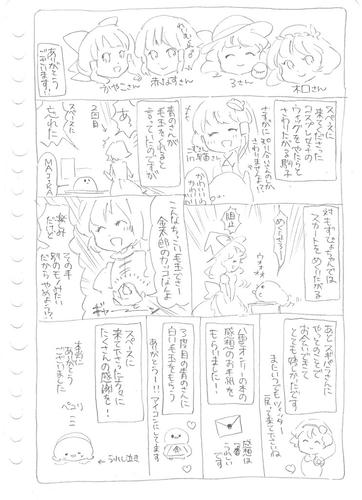 木口さん
ろさん
赤はすさん
かやこさん
ありがとう
ございます!!
スペースに
来てくださった
コスプレイヤーの
ウィッグをやたらと
さわりたがる駒子
さすがに知り合いでなきゃ
さわりませんよ!?
青のさんが
毛玉をくれると
言っていたのですが
2回目
スペースに
忘れた
MAJIKA
対もずぴょちゃんでは
スカートをめくりたがる
めくらせろ
阻止
ウオオオ
こんなちっこい毛玉でき
金太郎のカッコなんよ
その手
別のモノみたい
だからやめよっ!?
ギャー
あとスギバラさんに
やっとのことで
お会いできて
とても嬉かったです
またいつでもツイッター
戻って来て下さいね
八雲オンリーの本の
感想のお手紙を
もらいましたー!
感想は
一番
うれしい
です
3度目の青のさんに
白い毛玉をもらう
ありがとうー!!アイコンにしてます
スペースに
来て下さった方々に
たくさんの感謝を!
本当に
ありがとう
ございました
ペコリ
うれし泣き